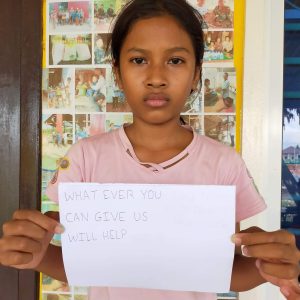 WHAT EVER YOU
CAN GIVE US
WILL HELP